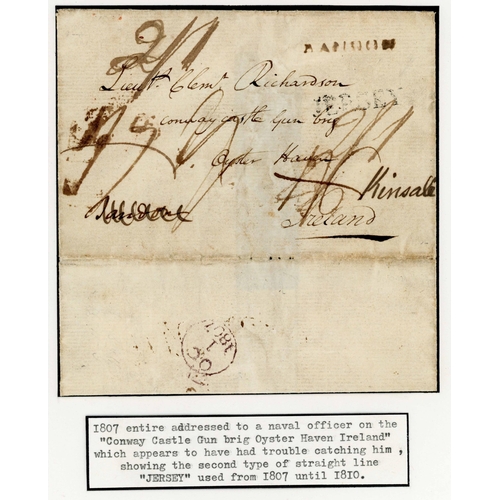 2/1
BANDON
Lieut. Clemt. Richardson
JERSEY
conway castle Gun brig
Oyster Haven
Kinsale
Bandon
Ireland
1807
1807 entire addressed to a naval officer on the
"Conway Castle Gun brig Oyster Haven Ireland"
which appears to have had trouble catching him,
showing the second type of straight line
"JERSEY" used from 1807 until 1810.